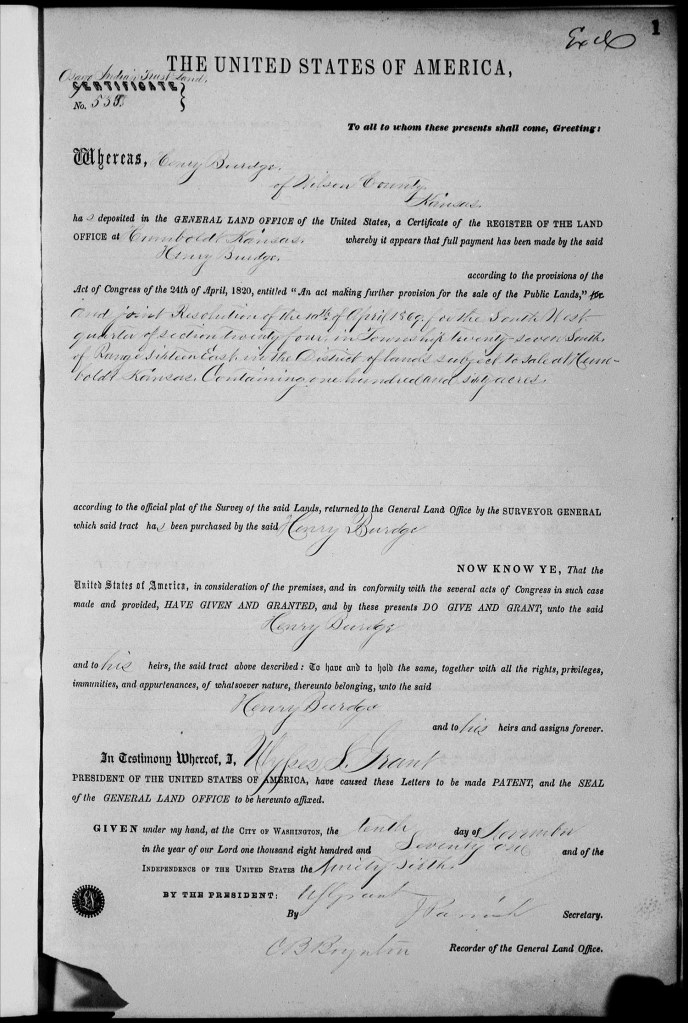 Excd
1
THE UNITED STATES OF AMERICA,
Osage Indian Trust Land.
CERTIFICATE
No. 538.
To all to whom these presents shall come, Greeting:
Whereas, Henry Burdge
of Wilson County,
Kansas.
has deposited in the GENERAL LAND OFFICE of the United States, a Certificate of the REGISTER OF THE LAND
OFFICE at Humboldt Kansas. whereby it appears that full payment has been made by the said
Henry Burdge.
according to the provisions of the
Act of Congress of the 24th of April, 1820, entitled “An act making further provision for the sale of the Public Lands,” the
and joint Resolution of the 10th of April 1869, for the South West
quarter of section twenty four, in Township twenty-seven South,
of Range sixteen East, in the District of lands subject to sale at Hum-
boldt Kansas. Containing one hundred and sixty acres.
according to the official plat of the Survey of the said Lands, returned to the General Land Office by the SURVEYOR GENERAL
which said tract has been purchased by the said Henry Burdge
NOW KNOW YE, That the
United States of America, in consideration of the premises, and in conformity with the several acts of Congress in such case
made and provided, HAVE GIVEN AND GRANTED, and by these presents DO GIVE AND GRANT, unto the said
Henry Burdge
and to his heirs, the said tract above described: To have and to hold the same, together with all the rights, privileges,
immunities, and appurtenances, of whatsoever nature, thereunto belonging, unto the said
Henry Burdge
and to his heirs and assigns forever.
In Testimony Whereof, I, Ulysses S. Grant
PRESIDENT OF THE UNITED STATES OF AMERICA, have caused these Letters to be made PATENT, and the SEAL
of the GENERAL LAND OFFICE to be hereunto affixed.
GIVEN under my hand, at the CITY OF WASHINGTON, the tenth day of November
in the year of our Lord one thousand eight hundred and Seventy one and of the
INDEPENDENCE OF THE UNITED STATES the Ninety Sixth
BY THE PRESIDENT: U S Grant
By J Parrish Secretary.
C B Boynton Recorder of the General Land Office.